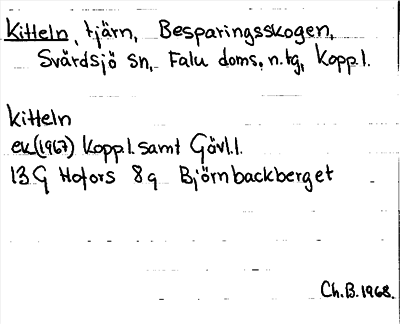 Kitteln, tjärn, Besparingsskogen,
Svärdsjö sn, Falu doms. n. tg, Kopp. l.
Kitteln
ek (1967) Kopp.l. samt Gävl.l.
13 G Hofors 8 g Björnbackberget
Ch.B. 1968.